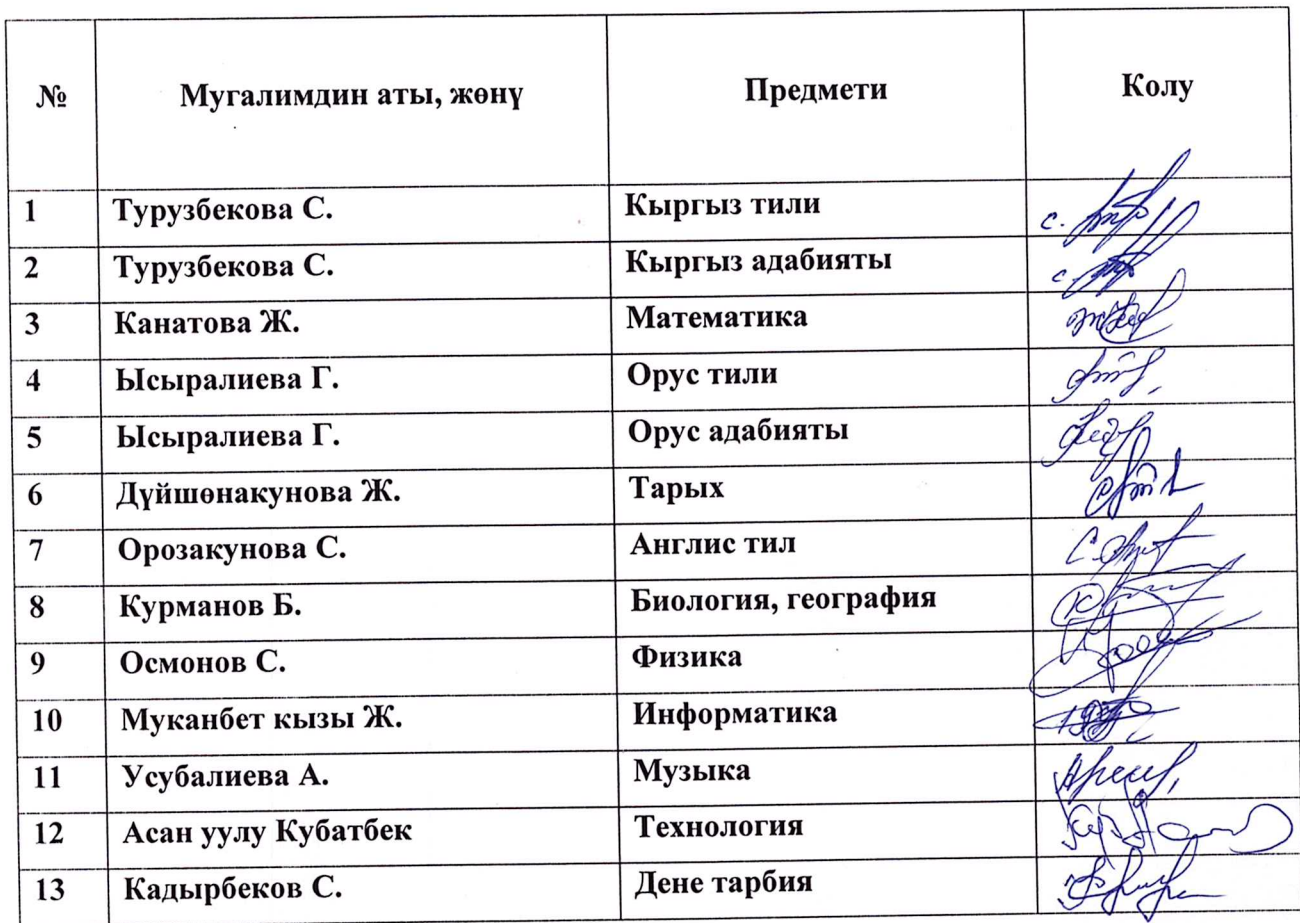 № Мугалимдин аты, жөнү Предмети Колу
1 Турузбекова С. Кыргыз тили
2 Турузбекова С. Кыргыз адабияты
3 Канатова Ж. Математика
4 Ысыралиева Г. Орус тили
5 Ысыралиева Г. Орус адабияты
6 Дүйшөнакунова Ж. Тарых
7 Орозакунова С. Англис тил
8 Курманов Б. Биология, география
9 Осмонов С. Физика
10 Муканбет кызы Ж. Информатика
11 Усубалиева А. Музыка
12 Асан уулу Кубатбек Технология
13 Кадырбеков С. Дене тарбия